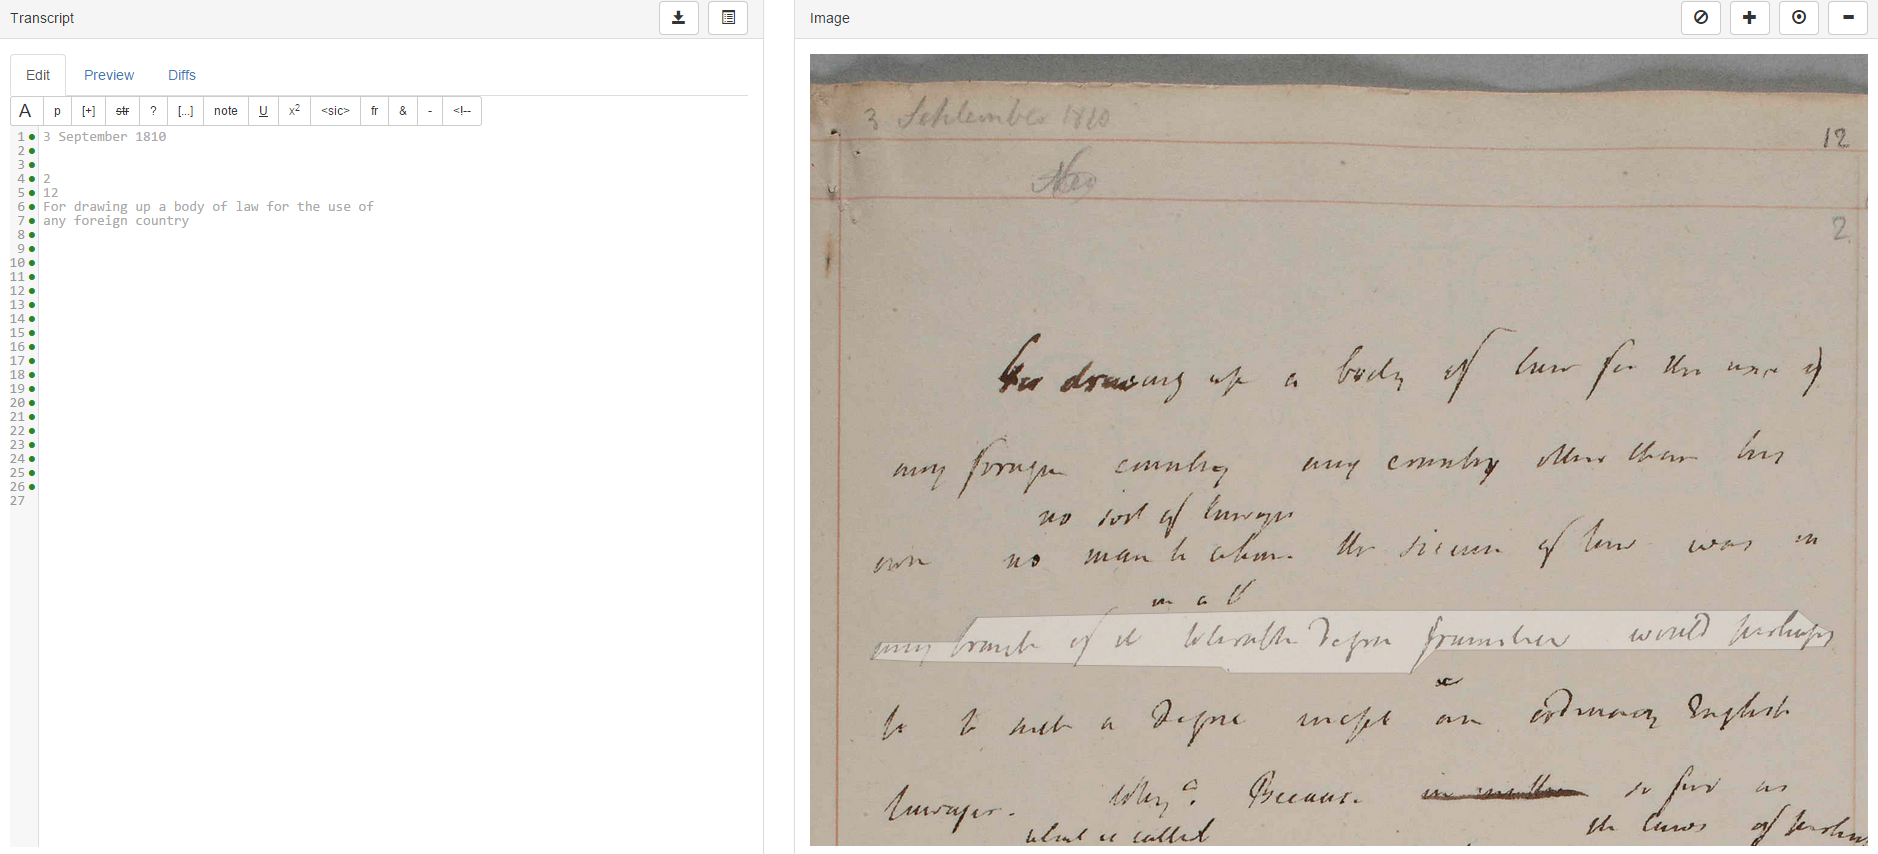 Transcript
Image
Edit Preview Diffs
A p [+] str ? [...] note U x² <sic> fr & - <!--
1 3 September 1810
2
3
4 2
5 12
6 For drawing up a body of law for the use of
7 any foreign country
8
9
10
11
12
13
14
15
16
17
18
19
20
21
22
23
24
25
26
27
3 September 1810
12
2
For drawing up a body of law for the use of
any foreign country any country other than his
no sort of lawyer
own no man to whom the science of law was in
in a
any branch of it tolerable degree familiar would perhaps
be to such a degree unapt as an ordinary English
Lawyer. Why? Because in matters so far as
what is called the laws of